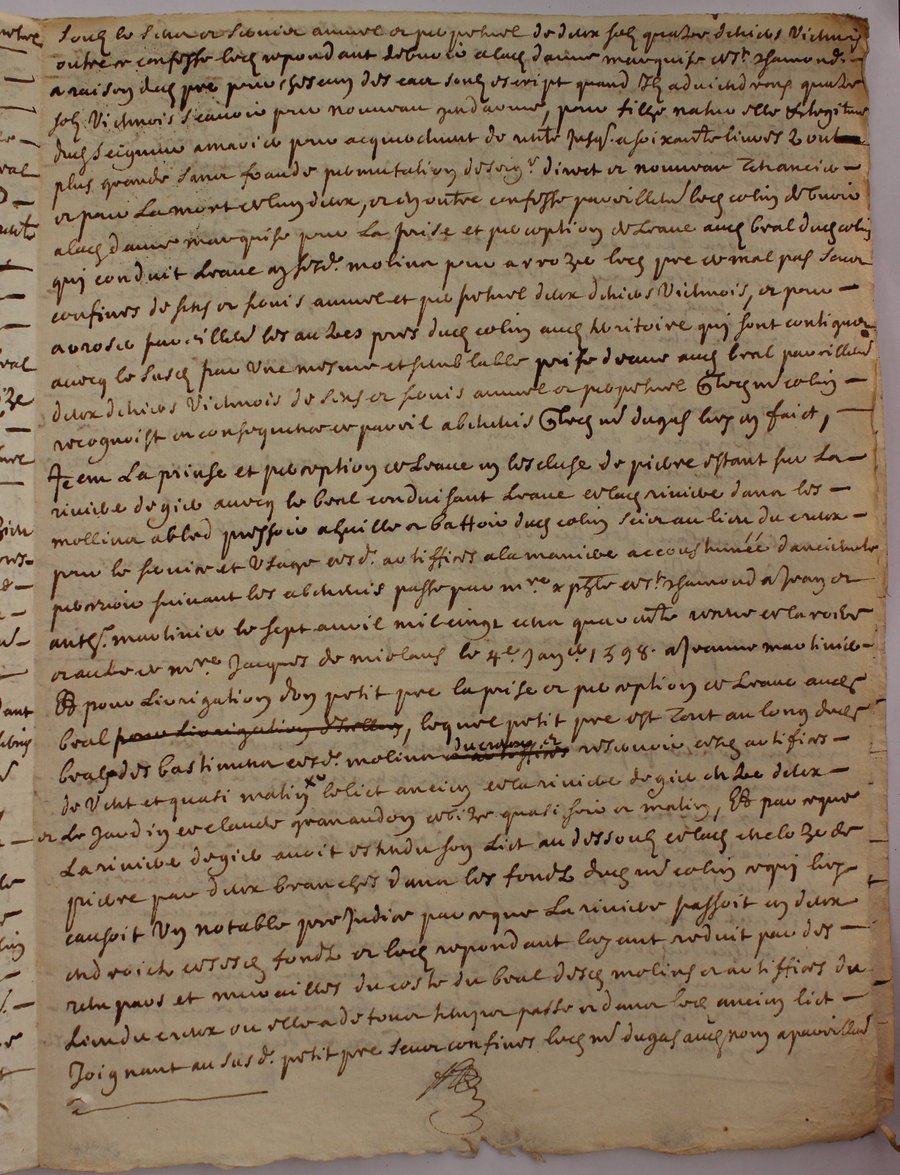 soub le sens et servis annuel et perpetuel de deux solz quatre deniers Viennois
outre ce confesse led respondant debvoir a lad dame marquise de st chamond
a raison dud pre pour chescun des cas soub escript quand Ilz adviendront quatre
solz Viennois scavoir pour nouveau gendarme, pour fille naturelle et legitime
dud seigneur a marier pour acquechment de rente Jusq. a soixante livres
plus grande sans fraude permutation de seigr direct et nouveau tenancier
et pour La mort de lun deux, et en outre confesse pareillemt led colin debvoir
a lad dame marquise pour La prise et perception de Leaue aud beal dud colin
qui conduit Leaue es susd. molins pour arrozer led pre de mal pas sous
confines de sens et servis annuel et perpetuel deux deniers Viennois, et pour
arroser pareillemt les autres pres dud colin aud territoire quj sont contigus
avecq le susd par Une mesme et semblable prise deaue aud beal pareillemt
deux deniers Viennois de sens et servis annuel et perpetuel Q led mr colin
recognoist en consequence de pareil abenevis Q led mr dugas luy en faict,
Item La prinse et perception de Leaue en lescluse de pierre estant sur La
riviere de gier avecq le beal conduisant Leaue de lad riviere dans les
mollins a bled pressoir a huille et battoir dud colin scize au lieu du creux
pour le service et Usage desd. artiffices a la maniere accoustumée danciennete
percevoir suivant les abenevis passe par mre xpfle de st chamond a Jean et
anth. martinier le sept avril mil cinqt cens quarante receue de la roiere
et autre de mre Jacques de miolans le 4e Janer 1398. a Jeanne martinier
Et pour Lirrigation dun petit pre la prise et perception de Leaue aud
beal pour Lirrigation, lequel petit pre est tout au long dud
beal des bastimens desd. molins du creux resserroir et artifices
de Vent et quasi matin le lict ancien de la riviere de gier entre deux
et Le Jardin de claude granandon de bize quasi soir et matin, Et par ceque
La riviere de gier avoit estendu son Lict au dessoub de lad cheloze de
pierre par deux branches dans les fondz dud mr colin cequj luy
causoit Un notable preJudice par ceque La riviere passoit en deux
endroictz de sesd fondz et led respondant layant reduit par des
rempars et murailles du coste du beal desd molins et artiffices du
Lieu du creux ou elle a de tous temps passe et dans led ancien lict
Joignant au susd. petit pre sous confines led mr dugas aud nom a pareillemt